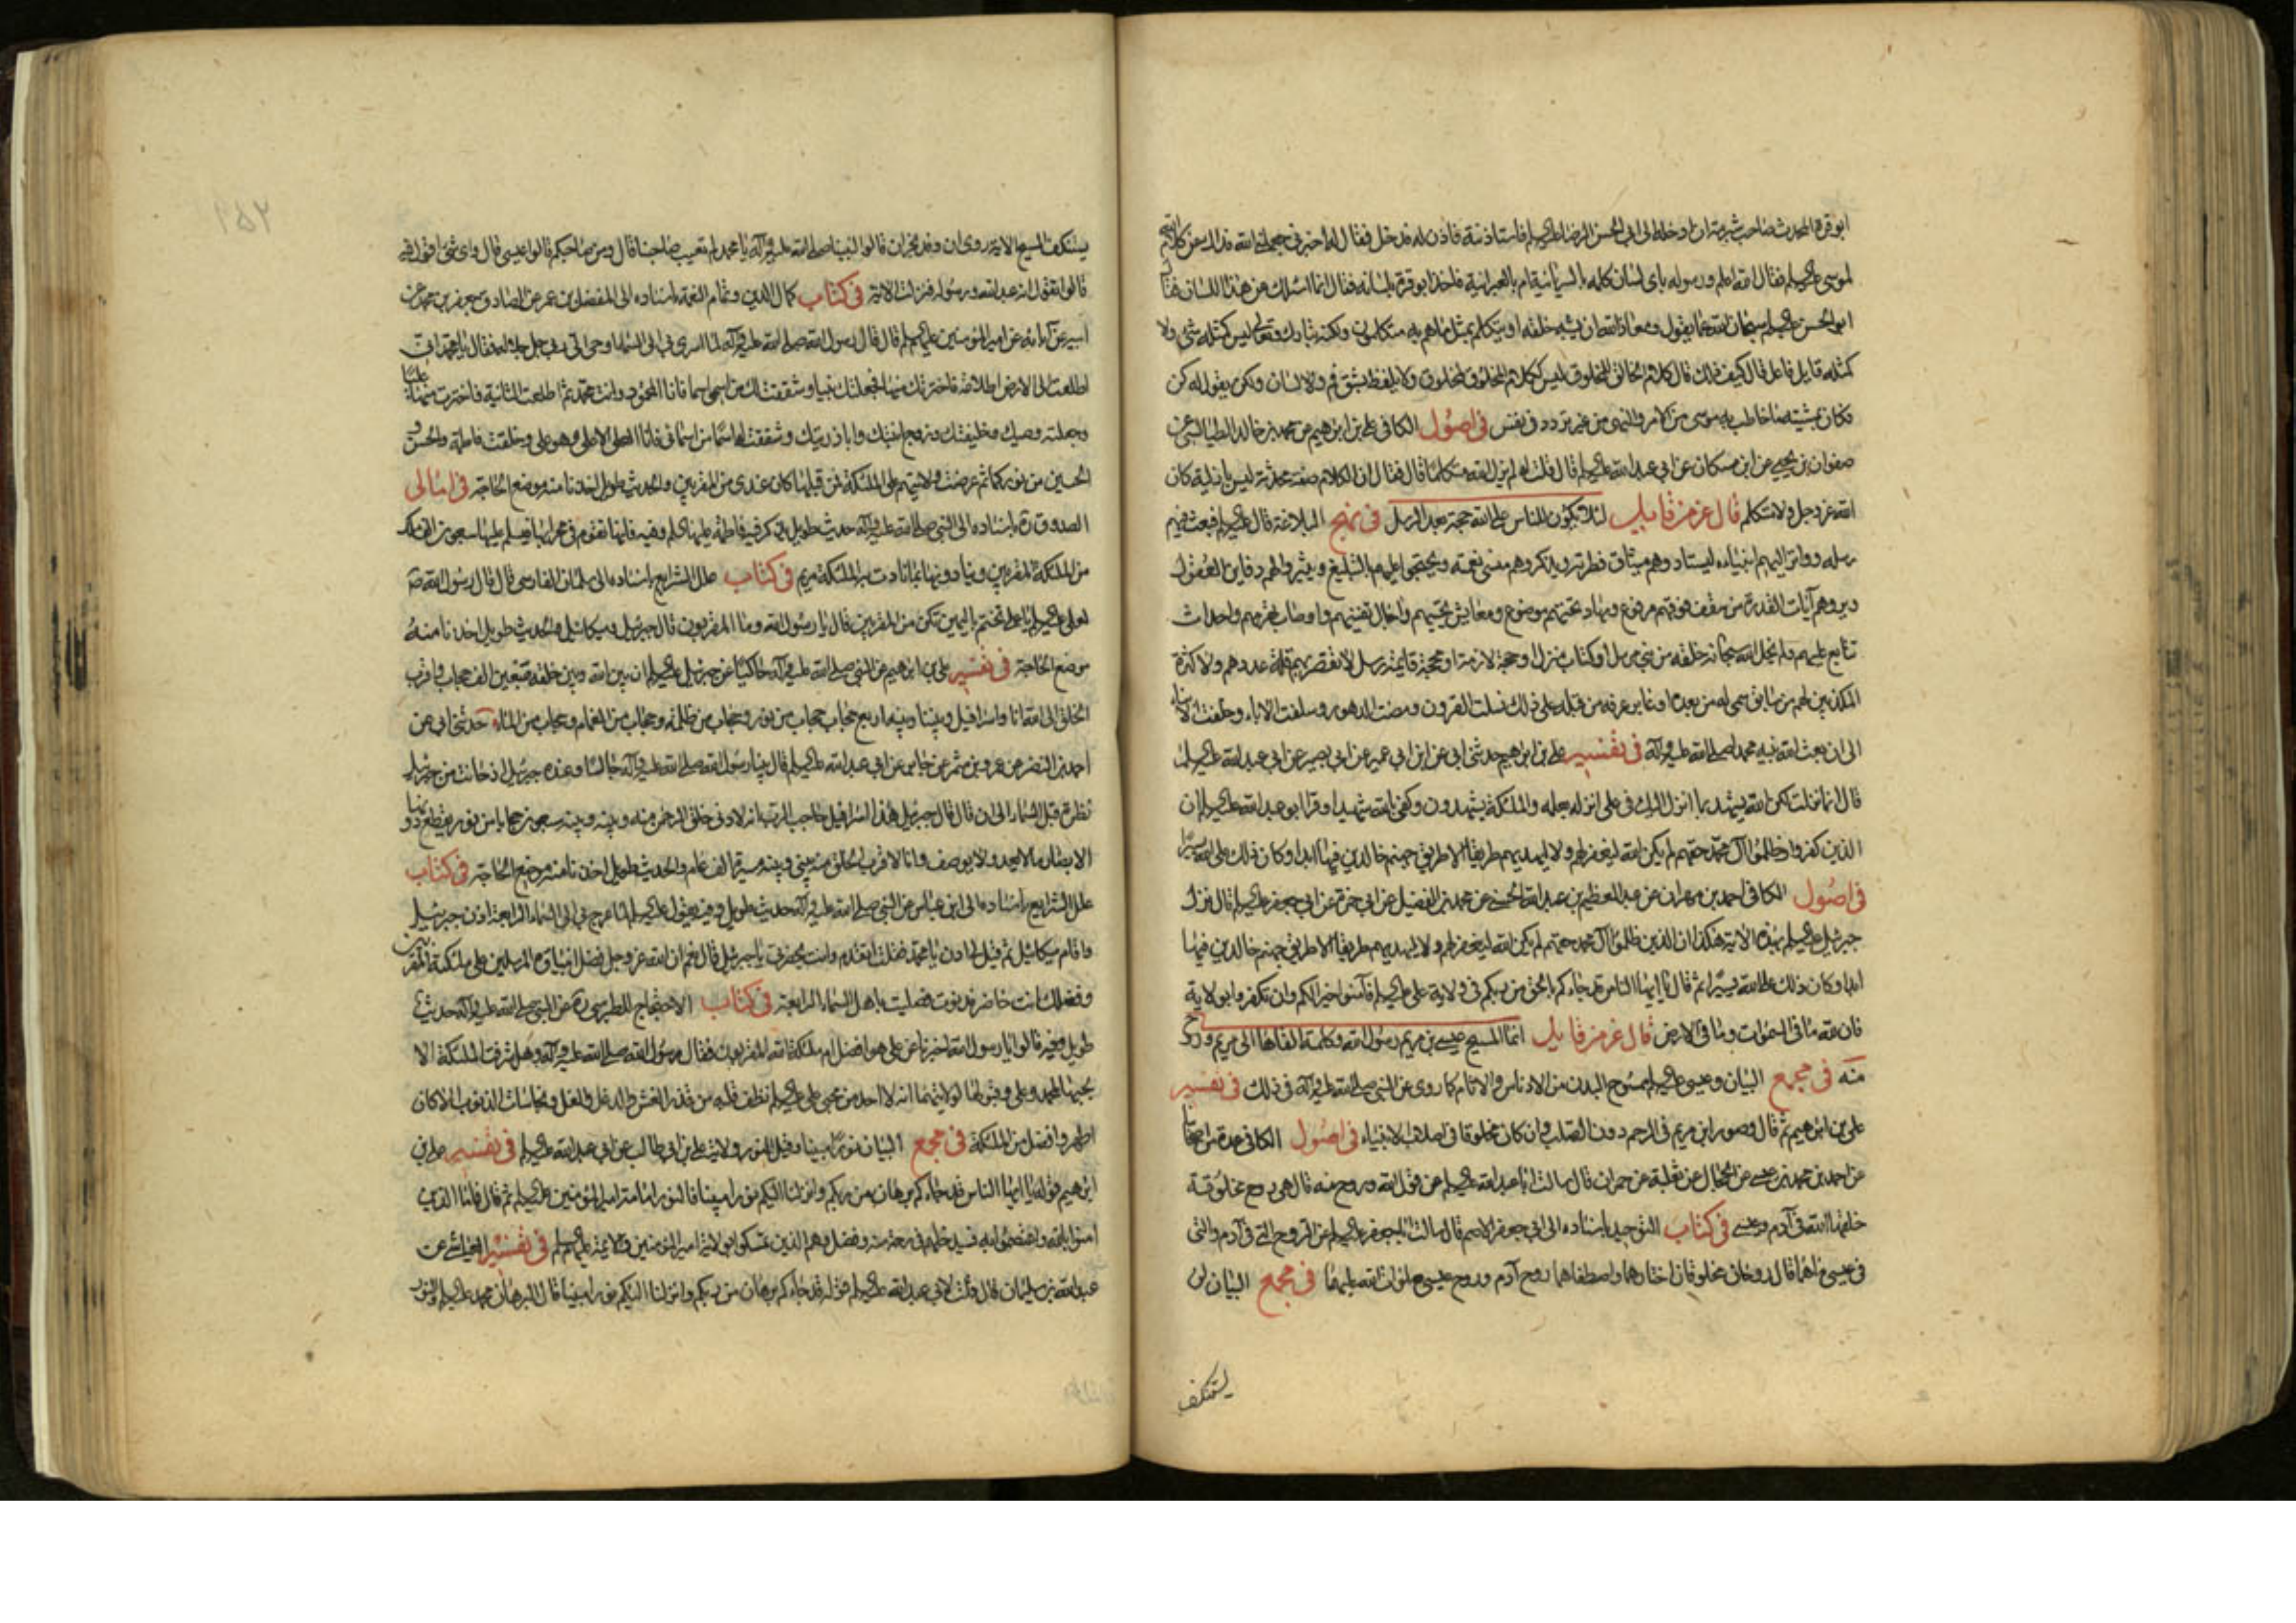 ابو قرة المحدث صاحب شبرمة ان ادخله الى ابي الحسن الرضا عليه السلم فاستاذنته فاذن له فدخل فقال له اخبرني جعلني الله فداك عن كلام الله
لموسى عليه السلم فقال الله اعلم ورسوله باى لسان كلمه بالسريانية ام بالعبرانية فاخذ ابو قرة بلسانه فقال انما اسئلك عن هذا اللسان فقال
ابو الحسن عليه السلم سبحان الله مما يقول ومعاذ الله ان يشبه خلقه او يتكلم بمثل ما هم به متكلمون ولكنه تبارك وتعالى ليس كمثله شئ ولا
كمثله قايل فاعل قال كيف ذلك قال كلام الخالق لمخلوق ليس ككلام المخلوق لمخلوق ولا يلفظ بشق فم ولا لسان ولكن يقول له كن
فكان بمشيته ما خاطب به موسى من الامر والنهى من غير تردد في نفس في اصول الكافى على بن ابرهيم عن محمد بن خالد الطيالسى عن
صفوان بن يحيى عن ابن مسكان عن ابي عبد الله عليه السلم قال قلت لم يزل الله متكلما قال فقال ان الكلام صفة محدثة ليس بازلية كان
الله عز وجل ولا متكلم قال عز من قايل لئلا يكون للناس على الله حجة بعد الرسل في نهج البلاغة قال عليه السلم فبعث فيهم
رسله وواتر اليهم انبياءه ليستادوهم ميثاق فطرته ويذكروهم منسى نعمته ويحتجوا عليهم بالتبليغ ويثيروا لهم دفاين العقول
ويروهم آيات القدرة من سقف فوقهم مرفوع ومهاد تحتهم موضوع ومعايش تحييهم واجال تفنيهم واوصاب تهرمهم واحداث
تتابع عليهم ولم يخل الله سبحانه خلقه من نبى مرسل او كتاب منزل او حجة لازمة او محجة قايمة رسل لا تقصر بهم قلة عددهم ولا كثرة
المكذبين لهم من سابق سمى له من بعده او غابر عرفه من قبله على ذلك نسلت القرون ومضت الدهور وسلفت الاباء وخلفت الابناء
الى ان بعث الله نبيه محمدا صلى الله عليه وآله في تفسير على بن ابرهيم حدثنى ابى عن ابن ابي عمير عن ابي بصير عن ابي عبد الله عليه السلم
قال انما نزلت لكن الله يشهد بما انزل اليك في على انزله بعلمه والملئكة يشهدون وكفى بالله شهيدا وقرا ابو عبد الله عليه السلم ان
الذين كفروا وظلموا آل محمد حقهم لم يكن الله ليغفر لهم ولا ليهديهم طريقا الا طريق جهنم خالدين فيها ابدا وكان ذلك على الله يسيرا
في اصول الكافى احمد بن مهران عن عبد العظيم بن عبد الله الحسنى عن محمد بن الفضيل عن ابي حمزة عن ابي جعفر عليه السلم قال نزل
جبرئيل عليه السلم بهذه الاية هكذا ان الذين ظلموا آل محمد حقهم لم يكن الله ليغفر لهم ولا ليهديهم طريقا الا طريق جهنم خالدين فيها
ابدا وكان ذلك على الله يسيرا ثم قال يا ايها الناس قد جاءكم بالحق من ربكم في ولاية على عليه السلم فآمنوا خيرا لكم وان تكفروا بولاية
فان لله ما في السموات وما في الارض قال عز من قايل انما المسيح عيسى بن مريم رسول الله وكلمته القاها الى مريم وروح
منه في مجمع البيان وعيسى عليه السلم ممسوح البدن من الادناس والاثام كما روى عن النبى صلى الله عليه وآله في ذلك في تفسير
على بن ابرهيم ثم قال وصور ابن مريم في الرحم دون الصلب وان كان مخلوقا في اصلاب الانبياء في اصول الكافى عدة من اصحابنا
عن احمد بن محمد بن عيسى عن الحجال عن ثعلبة عن حمران قال سالت ابا عبد الله عليه السلم عن قول الله وروح منه قال هى روح مخلوقة
خلقها الله في آدم وعيسى في كتاب التوحيد باسناده الى ابى جعفر الاصم قال سالت ابا جعفر عليه السلم عن الروح التى في آدم والتى
في عيسى ما هما قال روحان مخلوقان اختارهما واصطفاهما روح آدم وروح عيسى صلوات الله عليهما في مجمع البيان لن
يستنكف
يستنكف المسيح الاية روى ان وفد نجران قالوا لنبينا صلى الله عليه وآله يا محمد لم تعيب صاحبنا قال ومن صاحبكم قالوا عيسى قال واى شئ اقول فيه
قالوا تقول انه عبد الله ورسوله فنزلت الاية في كتاب كمال الدين وتمام النعمة باسناده الى المفضل بن عمر عن الصادق جعفر بن محمد عن
ابيه عن آبائه عن امير المؤمنين عليهم السلم قال قال رسول الله صلى الله عليه وآله لما اسرى بي الى السماء اوحى الى ربى جل جلاله فقال يا محمد انى
اطلعت الى الارض اطلاعة فاخترتك منها فجعلتك نبيا وشققت لك من اسمى اسما فانا المحمود وانت محمد ثم اطلعت الثانية فاخترت منها عليا
وجعلته وصيك وخليفتك وزوج ابنتك وابا ذريتك وشققت له اسما من اسمائى فانا العلى الاعلى وهو على وخلقت فاطمة والحسن و
الحسين من نوركما ثم عرضت ولايتهم على الملئكة فمن قبلها كان عندى من المقربين والحديث طويل اخذنا منه موضع الحاجة في امالى
الصدوق ره باسناده الى النبى صلى الله عليه وآله حديث طويل يذكر فيه فاطمة عليها السلم وفيه فانها تقوم في محرابها فيسلم عليها سبعون الف ملك
من الملئكة المقربين وينادونها بما نادت به الملئكة مريم في كتاب علل الشرايع باسناده الى سلمان الفارسى قال قال رسول الله ص
لعلى عليه السلم يا على تختم باليمين تكن من المقربين قال يا رسول الله وما المقربون قال جبرئيل وميكائيل والحديث طويل اخذنا منه
موضع الحاجة في تفسير على بن ابرهيم عن النبى صلى الله عليه وآله حاكيا عن جبرئيل عليه السلم ان بين الله وبين خلقه تسعين الف حجاب واقرب
الخلق الى الله انا واسرافيل وبيننا وبينه اربع حجب حجاب من نور وحجاب من ظلمة وحجاب من الغمام وحجاب من الماء حدثنى ابى عن
احمد بن النضر عن عمرو بن شمر عن جابر عن ابي عبد الله عليه السلم قال بينا رسول الله صلى الله عليه وآله جالسا وعنده جبرئيل اذ حانت من جبرئيل
نظرة قبل السماء الى ان قال قال جبرئيل هذا اسرافيل حاجب الرب انه لادنى خلق الرحمن منه وبينه وبينه سبعون حجابا من نور يقطع دونها
الابصار ما لا يعد ولا يوصف وانا لاقرب الخلق منه بينى وبينه مسيرة الف عام والحديث طويل اخذنا منه موضع الحاجة في كتاب
علل الشرايع باسناده الى ابن عباس عن النبى صلى الله عليه وآله حديث طويل وفيه يقول عليه السلم لما عرج بى الى السماء الرابعة اذن جبرئيل
واقام ميكائيل ثم قيل لى ادن يا محمد فقلت اتقدم وانت بحضرتى يا جبرئيل قال نعم ان الله عز وجل فضل انبياءه المرسلين على ملئكته المقربين
وفضلك انت خاصة فدنوت فصليت باهل السماء الرابعة في كتاب الاحتجاج للطبرسى ره عن النبى صلى الله عليه وآله حديث
طويل وفيه قالوا يا رسول الله اخبرنا عن على هو افضل ام ملئكة الله المقربون فقال رسول الله صلى الله عليه وآله وهل شرفت الملئكة الا
بحبها لمحمد وعلى وقبولها لولايتهما انه لا احد من محبى على عليه السلم نظف قلبه من قذر الغش والدغل والغل ونجاسات الذنوب الا كان
اطهر وافضل من الملئكة في مجمع البيان نورا مبينا وقيل النور ولاية على بن ابى طالب عن ابى عبد الله عليه السلم في تفسير على بن
ابرهيم قوله يا ايها الناس قد جاءكم برهان من ربكم وانزلنا اليكم نورا مبينا فالنور امامة امير المؤمنين عليه السلم ثم قال فاما الذين
امنوا بالله واعتصموا به فسيدخلهم في رحمة منه وفضل وهم الذين تمسكوا بولاية امير المؤمنين والائمة عليهم السلم في تفسير العياشى عن
عبد الله بن سليمان قال قلت لابى عبد الله عليه السلم قوله قد جاءكم برهان من ربكم وانزلنا اليكم نورا مبينا قال البرهان محمد عليه السلم والنور